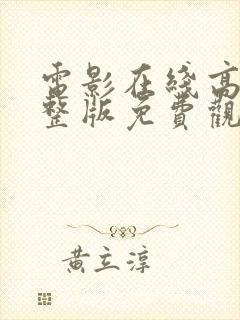 電影在綫高
整版免費觀
黃立淳